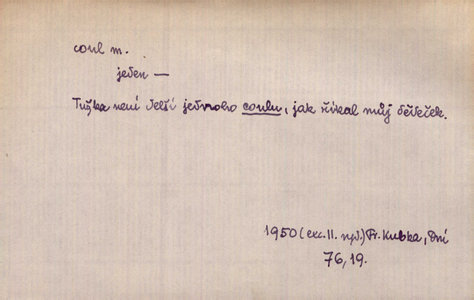 coul m.
jeden —
Tužka není delší jednoho coulu, jak říkal můj dědeček.
1950 (exc. II. vyd.) Fr. Kubka, Dni
76, 19.